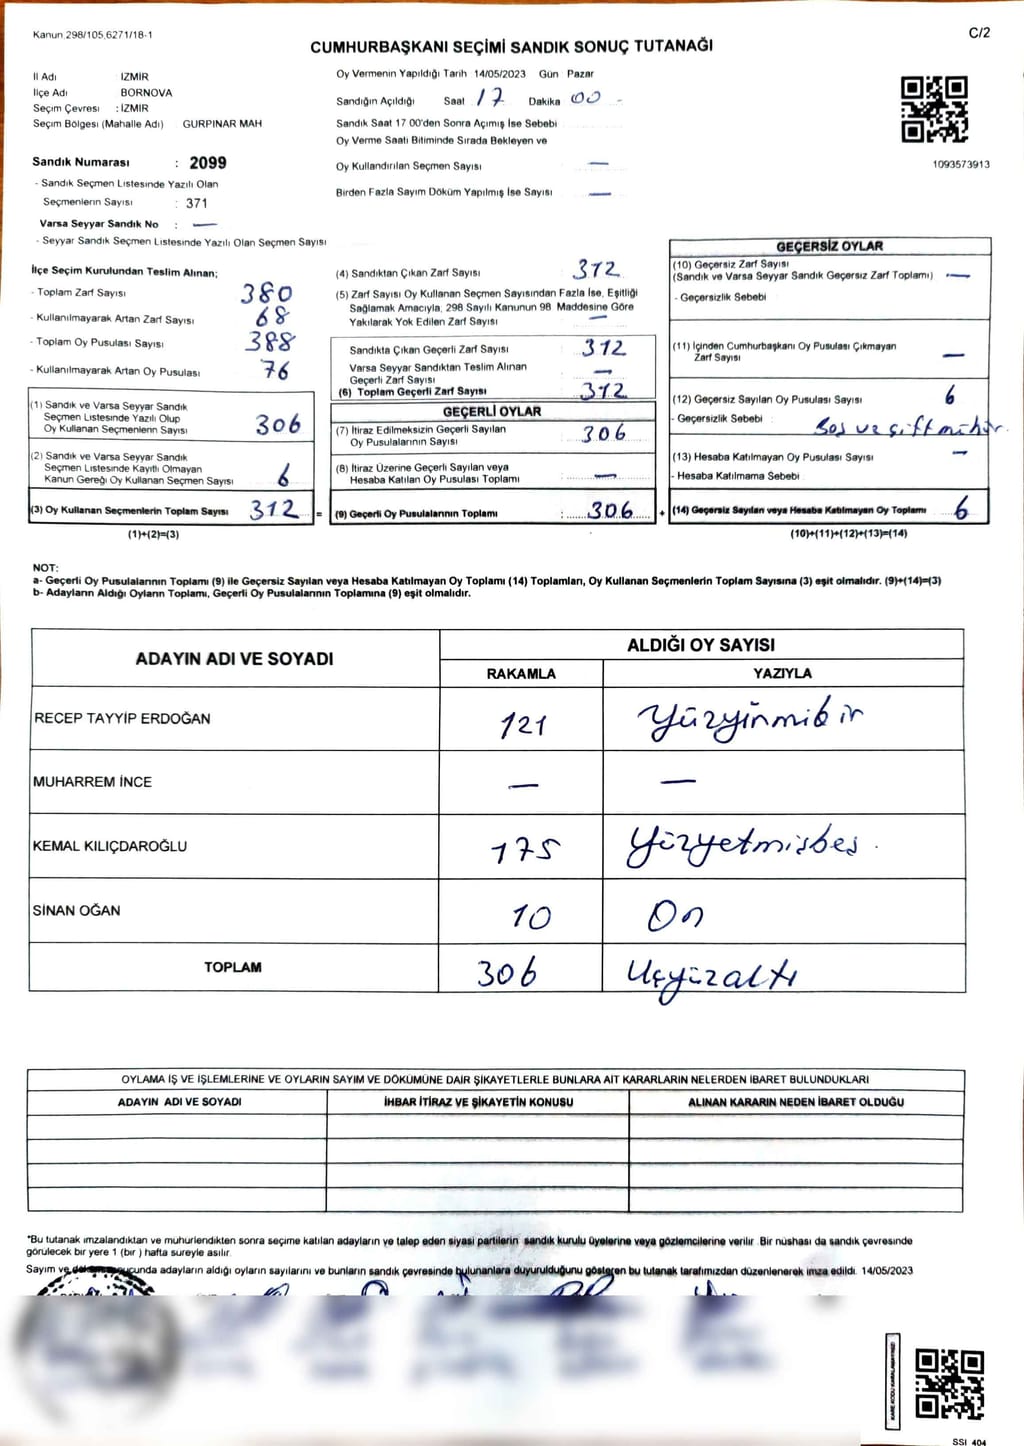 Kanun.298/105,6271/18-1
C/2
CUMHURBAŞKANI SEÇİMİ SANDIK SONUÇ TUTANAĞI
İl Adı İZMİR
İlçe Adı BORNOVA
Seçim Çevresi : İZMİR
Seçim Bölgesi (Mahalle Adı) GURPINAR MAH
Sandık Numarası : 2099
- Sandık Seçmen Listesinde Yazılı Olan
Seçmenlerin Sayısı : 371
Varsa Seyyar Sandık No : —
- Seyyar Sandık Seçmen Listesinde Yazılı Olan Seçmen Sayısı
Oy Vermenin Yapıldığı Tarih 14/05/2023 Gün Pazar
Sandığın Açıldığı Saat 17 Dakika 00
Sandık Saat 17 00'den Sonra Açımış İse Sebebi
Oy Verme Saati Bitiminde Sırada Bekleyen ve
Oy Kullandırılan Seçmen Sayısı —
Birden Fazla Sayım Döküm Yapılmış İse Sayısı —
1093573913
İlçe Seçim Kurulundan Teslim Alınan;
- Toplam Zarf Sayısı 380
- Kullanılmayarak Artan Zarf Sayısı 68
- Toplam Oy Pusulası Sayısı 388
- Kullanılmayarak Artan Oy Pusulası 76
(1) Sandık ve Varsa Seyyar Sandık
Seçmen Listesinde Yazılı Olup
Oy Kullanan Seçmenlerin Sayısı 306
(2) Sandık ve Varsa Seyyar Sandık
Seçmen Listesinde Kayıtlı Olmayan
Kanun Gereği Oy Kullanan Seçmen Sayısı 6
(3) Oy Kullanan Seçmenlerin Toplam Sayısı 312 =
(1)+(2)=(3)
(4) Sandıktan Çıkan Zarf Sayısı 312
(5) Zarf Sayısı Oy Kullanan Seçmen Sayısından Fazla İse, Eşitliği
Sağlamak Amacıyla, 298 Sayılı Kanunun 98 Maddesine Göre
Yakılarak Yok Edilen Zarf Sayısı —
Sandıkta Çıkan Geçerli Zarf Sayısı 312
Varsa Seyyar Sandıktan Teslim Alınan
Geçerli Zarf Sayısı —
(6) Toplam Geçerli Zarf Sayısı 312
GEÇERLİ OYLAR
(7) İtiraz Edilmeksizin Geçerli Sayılan
Oy Pusulalarının Sayısı 306
(8) İtiraz Üzerine Geçerli Sayılan veya
Hesaba Katılan Oy Pusulası Toplamı —
(9) Geçerli Oy Pusulalarının Toplamı : 306 +
GEÇERSİZ OYLAR
(10) Geçersiz Zarf Sayısı
(Sandık ve Varsa Seyyar Sandık Geçersiz Zarf Toplamı) —
- Geçersizlik Sebebi
(11) İçinden Cumhurbaşkanı Oy Pusulası Çıkmayan
Zarf Sayısı —
(12) Geçersiz Sayılan Oy Pusulası Sayısı 6
- Geçersizlik Sebebi Boş ve çift mühür.
(13) Hesaba Katılmayan Oy Pusulası Sayısı —
- Hesaba Katılmama Sebebi
(14) Geçersiz Sayılan veya Hesaba Katılmayan Oy Toplamı 6
(10)+(11)+(12)+(13)=(14)
NOT:
a- Geçerli Oy Pusulalarının Toplamı (9) ile Geçersiz Sayılan veya Hesaba Katılmayan Oy Toplamı (14) Toplamları, Oy Kullanan Seçmenlerin Toplam Sayısına (3) eşit olmalıdır. (9)+(14)=(3)
b- Adayların Aldığı Oyların Toplamı, Geçerli Oy Pusulalarının Toplamına (9) eşit olmalıdır.
ADAYIN ADI VE SOYADI ALDIĞI OY SAYISI
RAKAMLA YAZIYLA
RECEP TAYYİP ERDOĞAN 121 Yüzyirmibir
MUHARREM İNCE — —
KEMAL KILIÇDAROĞLU 175 Yüzyetmişbeş.
SİNAN OĞAN 10 On
TOPLAM 306 Üçyüzaltı
OYLAMA İŞ VE İŞLEMLERİNE VE OYLARIN SAYIM VE DÖKÜMÜNE DAİR ŞİKAYETLERLE BUNLARA AİT KARARLARIN NELERDEN İBARET BULUNDUKLARI
ADAYIN ADI VE SOYADI İHBAR İTİRAZ VE ŞİKAYETİN KONUSU ALINAN KARARIN NEDEN İBARET OLDUĞU
*Bu tutanak imzalandıktan ve mühürlendikten sonra seçime katılan adayların ve talep eden siyasi partilerin sandık kurulu üyelerine veya gözlemcilerine verilir. Bir nüshası da sandık çevresinde
görülecek bir yere 1 (bir ) hafta süreyle asılır.
Sayım ve sonucunda adayların aldığı oyların sayılarını ve bunların sandık çevresinde bulunanlara duyurulduğunu gösteren bu tutanak tarafımızdan düzenlenerek imza edildi. 14/05/2023
KARE KODU KARALAMAYINIZ
SSI 404